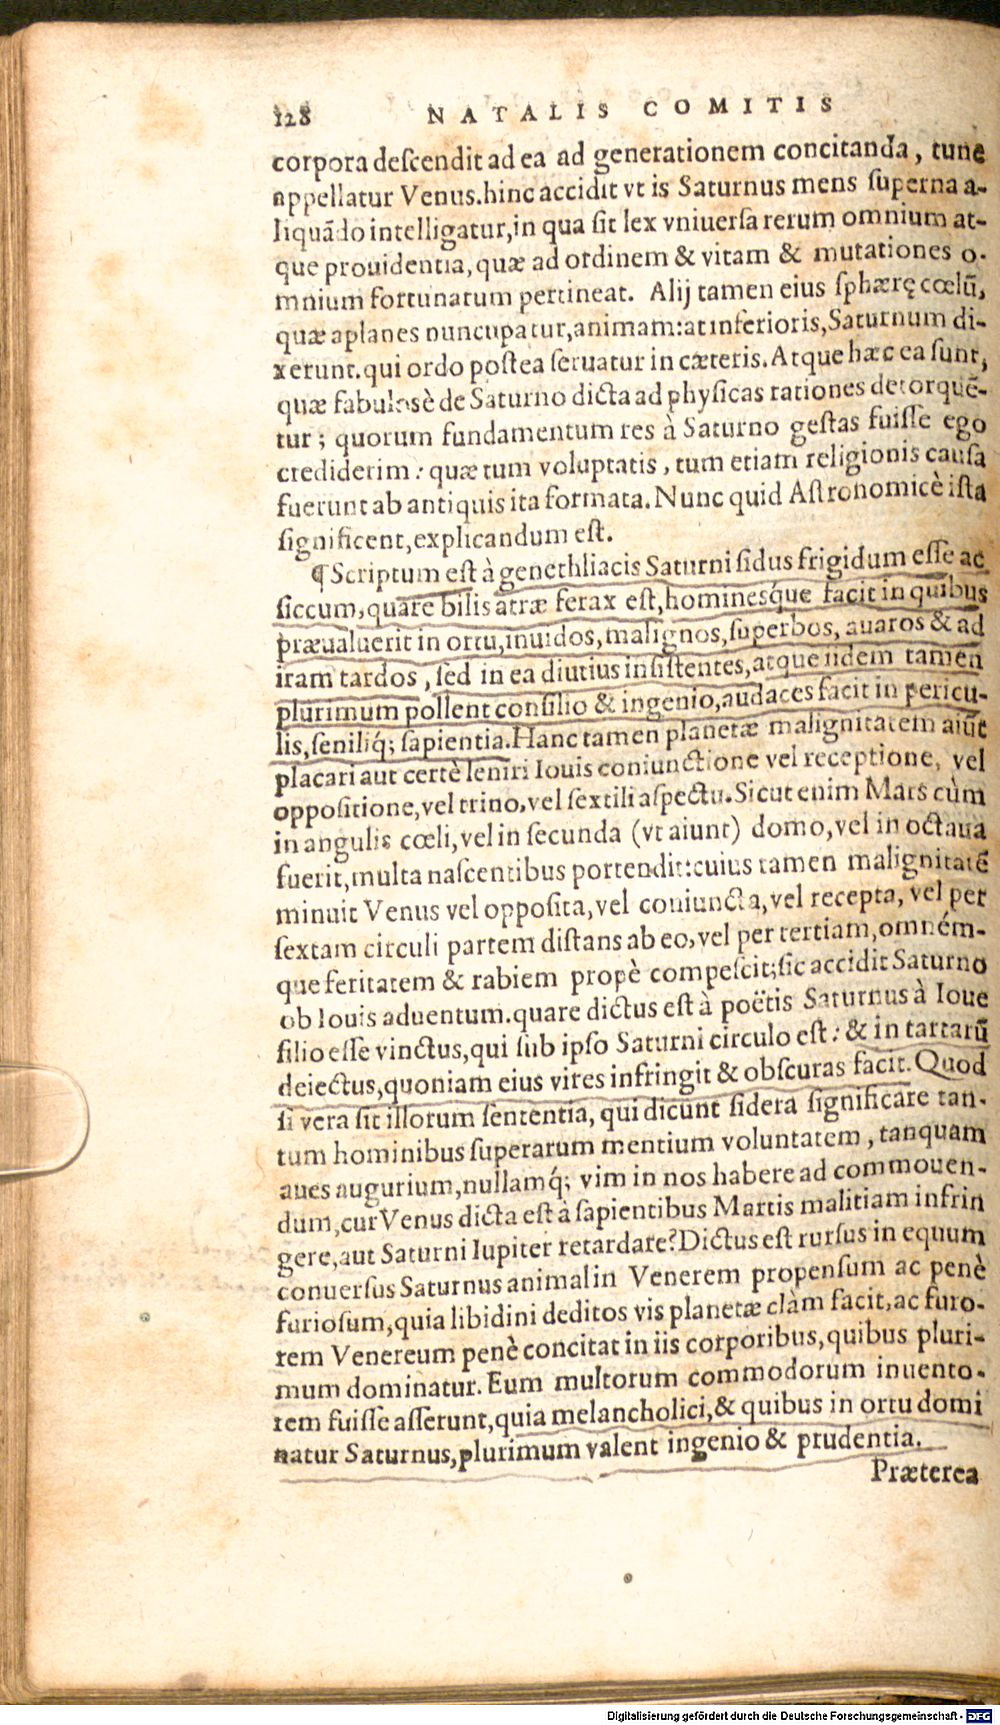 128 NATALIS COMITIS
corpora deſcendit ad ea ad generationem concitanda, tunc
appellatur Venus. hinc accidit vt is Saturnus mens ſuperna a-
liquãdo intelligatur, in qua ſit lex vniuerſa rerum omnium at-
que prouidentia, quæ ad ordinem & vitam & mutationes o-
mnium fortunatum pertineat. Alij tamen eius ſphærę cœlũ,
quæ aplanes nuncupatur, animam: at inferioris, Saturnum di-
xerunt. qui ordo poſtea ſeruatur in cæteris. Atque hæc ea ſunt,
quæ fabulosè de Saturno dicta ad phyſicas rationes detorquē-
tur; quorum fundamentum res à Saturno geſtas fuiſſe ego
crediderim: quæ tum voluptatis, tum etiam religionis cauſa
fuerunt ab antiquis ita formata. Nunc quid Aſtronomicè iſta
ſignificent, explicandum eſt.
¶ Scriptum eſt à genethliacis Saturni ſidus frigidum eſſe ac
ſiccum, quare bilis atræ ferax eſt, hominesq́ue facit in quibus
præualuerit in ortu, inuidos, malignos, ſuperbos, auaros & ad
iram tardos, ſed in ea diutius inſiſtentes, atque iidem tamen
plurimum pollent conſilio & ingenio, audaces facit in pericu-
lis, ſeniliq́; ſapientia. Hanc tamen planetæ malignitatem aiũt
placari aut certè leniri Iouis coniunctione vel receptione, vel
oppoſitione, vel trino, vel ſextili aſpectu. Sicut enim Mars cùm
in angulis cœli, vel in ſecunda (vt aiunt) domo, vel in octaua
fuerit, multa naſcentibus portendit: cuius tamen malignitatē
minuit Venus vel oppoſita, vel coniuncta, vel recepta, vel per
ſextam circuli partem diſtans ab eo, vel per tertiam, omném-
que feritatem & rabiem propè compeſcit; ſic accidit Saturno
ob Iouis aduentum. quare dictus eſt à poëtis Saturnus à Ioue
filio eſſe vinctus, qui ſub ipſo Saturni circulo eſt: & in tartarũ
deiectus, quoniam eius vires infringit & obſcuras facit. Quod
ſi vera ſit illorum ſententia, qui dicunt ſidera ſignificare tan-
tum hominibus ſuperarum mentium voluntatem, tanquam
aues augurium, nullamq́; vim in nos habere ad commouen-
dum, cur Venus dicta eſt à ſapientibus Martis malitiam infrin
gere, aut Saturni Iupiter retardare? Dictus eſt rurſus in equum
conuerſus Saturnus animal in Venerem propenſum ac penè
furioſum, quia libidini deditos vis planetæ clàm facit, ac furo-
rem Venereum penè concitat in iis corporibus, quibus pluri-
mum dominatur. Eum multorum commodorum inuento-
rem fuiſſe aſſerunt, quia melancholici, & quibus in ortu domi
natur Saturnus, plurimum valent ingenio & prudentia.
Præterea
Digitalisierung gefördert durch die Deutsche Forschungsgemeinschaft - DFG